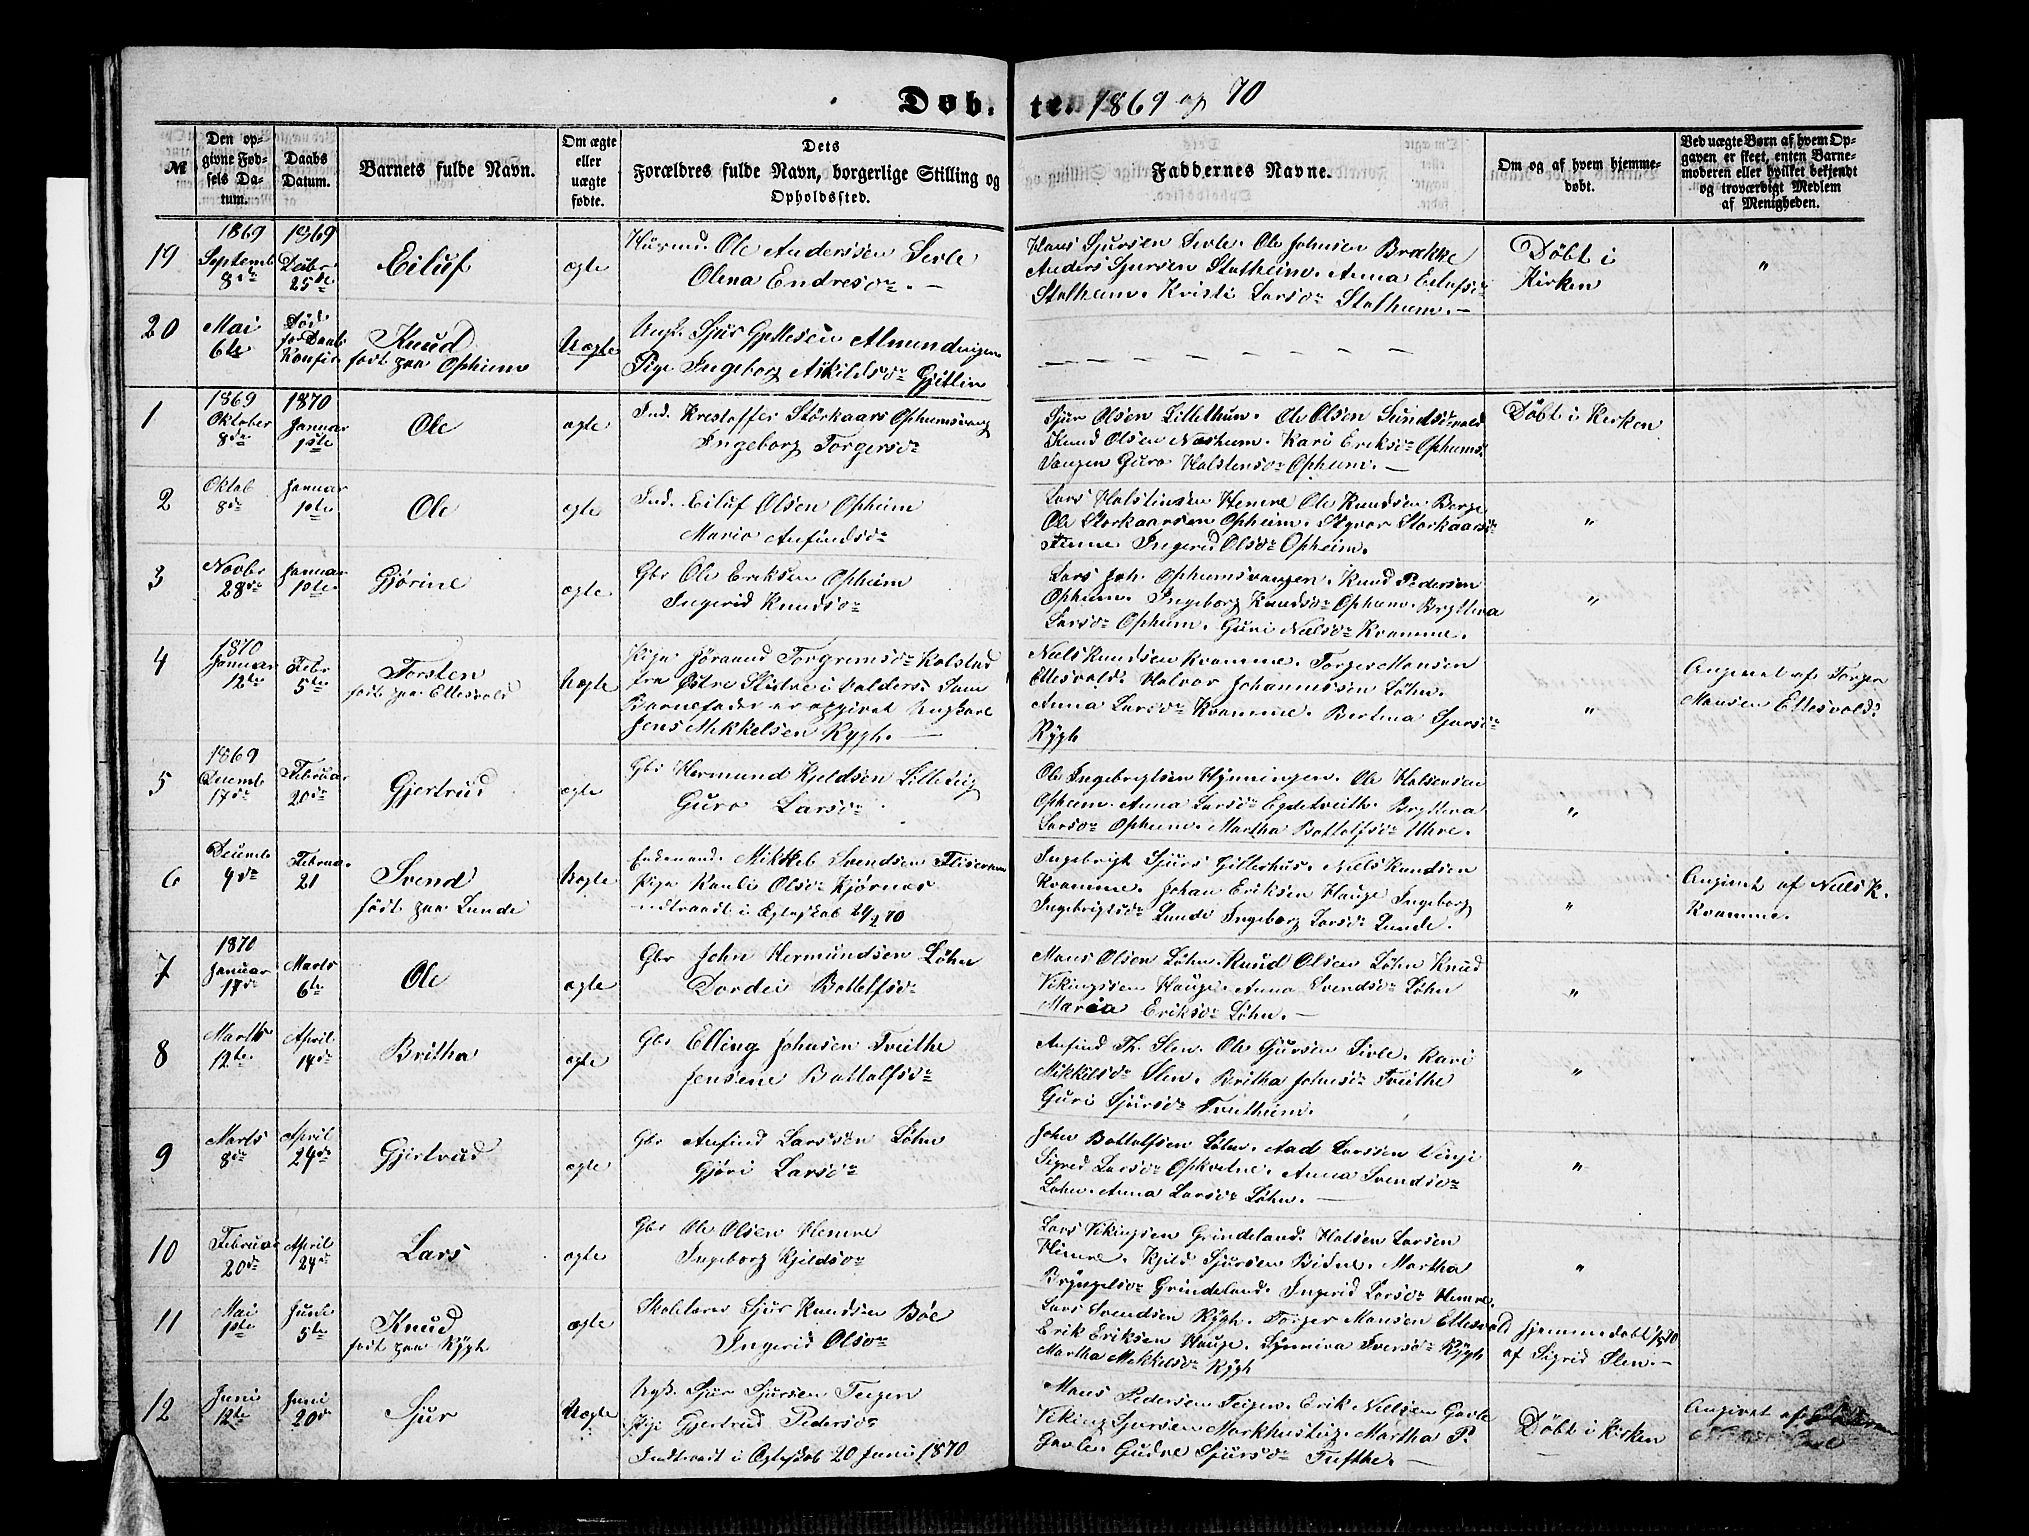 Døbte 1869 og 70
№
Den opgivne Fødsels Datum.
Daabs Datum.
Barnets fulde Navn.
Om ægte eller uægte fødte.
Dets Forældres fulde Navn, borgerlige Stilling og Opholdssted.
Faddernes Navne.
Om og af hvem hjemmedøbt.
Ved uægte Børn af hvem Opgaven er skeet, enten Barnemoderen eller hvilket bekjendt og troværdigt Medlem af Menigheden.
19 1869 Septemb 8de 1869 Decbr 25de Eiluf ægte
Husmd. Ole Anderssen Sivle
Olena Endresdr. —
Hans Sjursen Sivle. Ole Johnsen Brække
Anders Sjursen Stalheim. Anna Eilufsdr
Stalheim. Kristi Larsdr Stalheim. —
Döbt i
Kirken
"
20 Mai 6te Död for Daab Knud
født paa Opheim
Uægte
Ungk. Sjur Gjellesen
Pige Ingeborg
— — — — — — — —
1 1869 Oktober 8de 1870 Januar 1ste Ole ægte
Ind. Krestoffer Störkaars Ophemsvang
Ingeborg Torgersdr
Sjur Olsen Lillethun. Ole Olsen
Knud Olsen Næsheim. Kari Eriksdr Ophems
Vangen Guro Halstensdr Opheim. —
Döbt i Kirken
2 Oktob 8de Januar 1ste Ole ægte
Ind. Eiluf Olsen Opheim
Maria Anfindsdr
Lars Halstensen Hemre Ole Knudsen Berge
Ole Storkaarsen Opheim. Storkaarsdr
Ingerid Olsdr Opheim.
"
3 Novbr 28de Januar 1ste Gjörine ægte
Gbr Ole Eriksen Opheim
Ingerid Knudsdr
Lars Joh. Ophemsvangen. Knud Pedersen
Ophem. Ingeborg Knudsdr Ophem. Brytteva
Larsdr Ophem. Guri Nielsdr Kvamme.
"
4 1870 Januar 12te Febr 5te Torsten
født paa Ettesvold
Uægte
Pige Jöraand Torgrimsdr Kolstad
fra Östre Slidre i Valders. Som
Barnefader er opgivet Ungkarl
Jens Mikkelsen Rygh. —
Niels Knudsen Kvamme. Torger Monsen
Ettesvold. Halvor Johannessen Löhn.
Anna Larsdr Kvamme. Bertina Sjursdr
Rygh
"
Angivet af Torger
Monsen Ettesvold.
5 1869 Decemb 17de Februar 20de Gjertrud ægte
Gbr Hermund Kjeldsen
Guro Larsdr
Ole Ingebrigtsen Hynningen. Ole Halsensen
Opheim. Anna Larsdr Egdetveith. Brytteva
Larsdr Ophem. Martha Bottolfsdr Uhre.
"
6 Decemb 9de Februar 21 Svend
født paa Lunde
Uægte
Mikkel Svendsen
Pige Kanli Olsdr Hjørnas
indtraadt i Ægteskab 24/2 70
Ingebrigt Sjurs Gillerhus. Niels Knudsen
Kvamme. Johan Eriksen Hauge Ingeborg
Ingebrigtsdr Lunde Ingeborg Larsdr Lunde.
"
Angivet af Niels K.
Kvamme.
7 1870 Januar 17de Marts 6te Ole ægte
Gbr John Hermundsen Löhn
Dordei Bottelfsdr
Mons Olsen Löhn. Knud Olsen Löhn Knud
Vikingssen Hauge. Anna Svendsdr Löhn
Maria Eriksdr Löhn. —
"
8 Marts 12te April 14de Britha ægte
Gbr Elling Johnsen Tveithe
Jensine Bottolfsdr
Anfind Th. Slen. Ole Sjursen Sivle. Kari
Mikkelsdr Slen. Britha Johnsdr Tveithe
Guri Sjursdr Tveitheim.
"
9 Marts 8de April 24de Gjertrud ægte
Gbr Anfind Larssön Löhn
Gjöri Larsdr
John Bottolfsen Löhn. Aad Larssen Vinje
Sigrid Larsdr Opkvitne. Anna Svendsdr
Löhn. Anna Larsdr Löhn. —
"
10 Februar 20de April 24de Lars ægte
Gbr Ole Olsen Hemre
Ingeborg Kjeldsdr
Lars Vikingsen Grindeland. Halsen Larsen
Hemre. Kjeld Sjursen Bidne. Martha
Bryngelsdr Grindeland. Ingerid Larsdr Hemre.
"
11 Mai 1ste Juni 5te Knud
født paa Rygh
ægte
Skolelærer Sjur Knudsen Böe
Ingerid Olsdr
Lars Svendsen Rygh. Torger Monsen Ettesvold
Erik Eriksen Hauge. Synneva Iversdr Rygh
Martha Mikkelsdr Rygh
Hjemmedøbt 1/5 70
af Sigrid Slen. —
12 Juni 12te Juni 20de Sjur Uægte
Ugk. Sjur Sjursen Teigen
Pige Gjertrud Pedersdr
Indtraadt i Ægteskab 20 Juni 1870
Mons Pedersen Teigen. Erik Nielsen Gavle
Viking Sjursen Markhusteig. Martha P.
Gavle. Gudve Sjursdr Tufthe. —
Döbt i Kirken
Angivet af